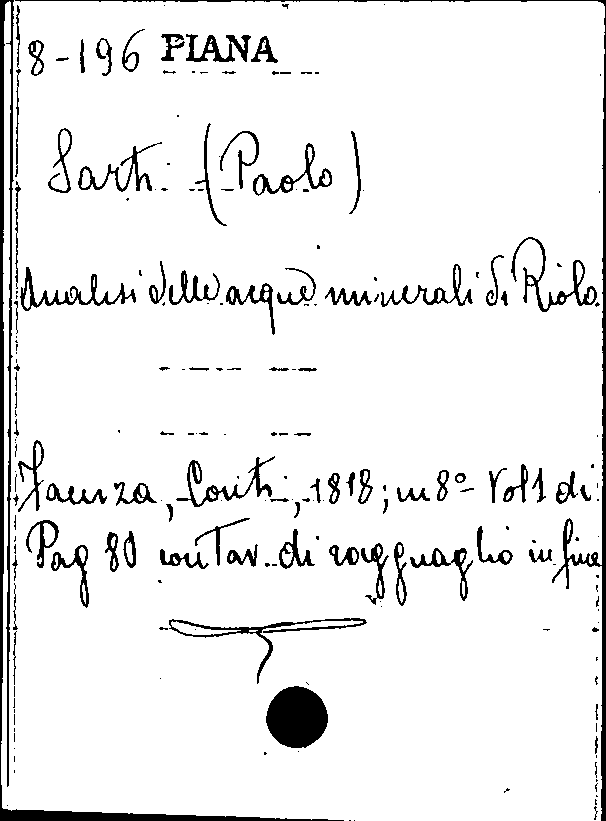 8-196 PIANA
Sarti (Paolo)
Analisi delle acque minerali di Riolo
Faenza, Conti, 1818; in 8º Vol 1 di
Pag 80 con Tav. di ragguaglio in fine